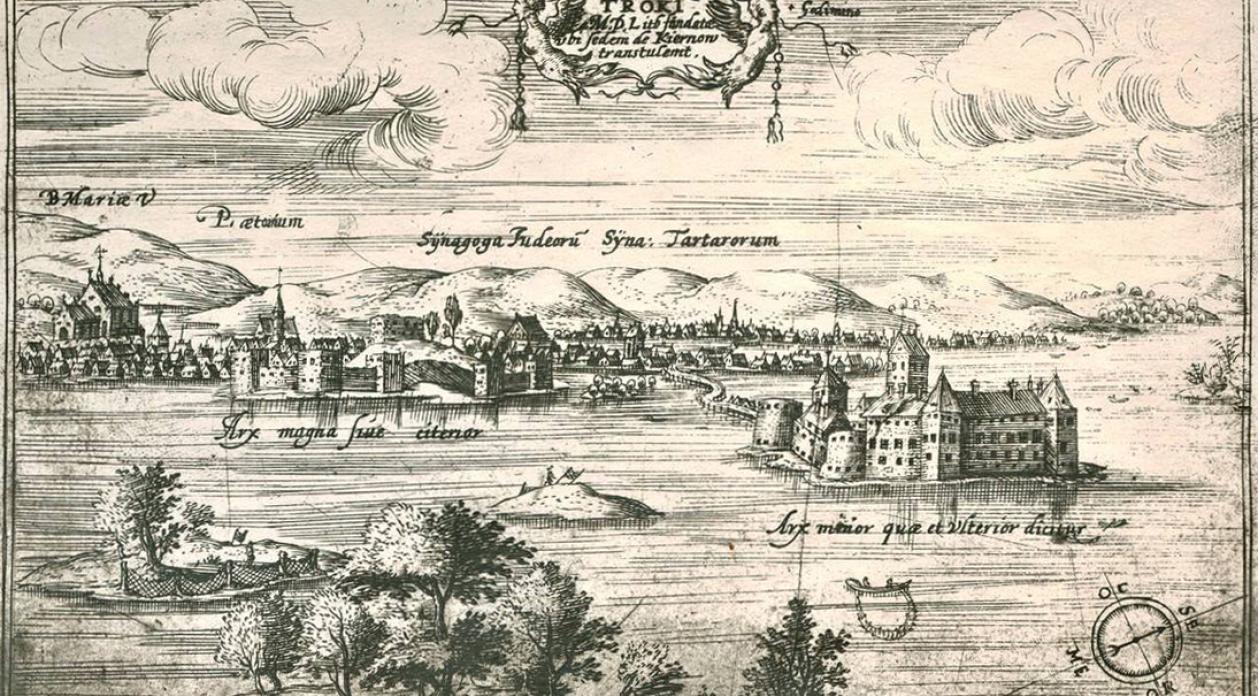 TROKI
M.D. Litb fundata
ubi sedem de Kiernow
transtulemt.
Gedimino
B Mariæ V
P. ætorium
Sÿnagoga Judeorū Sÿna: Tartarorum
Arx magna siue citerior
Arx minor quæ et Vlterior dicitur
Or
Se
Me